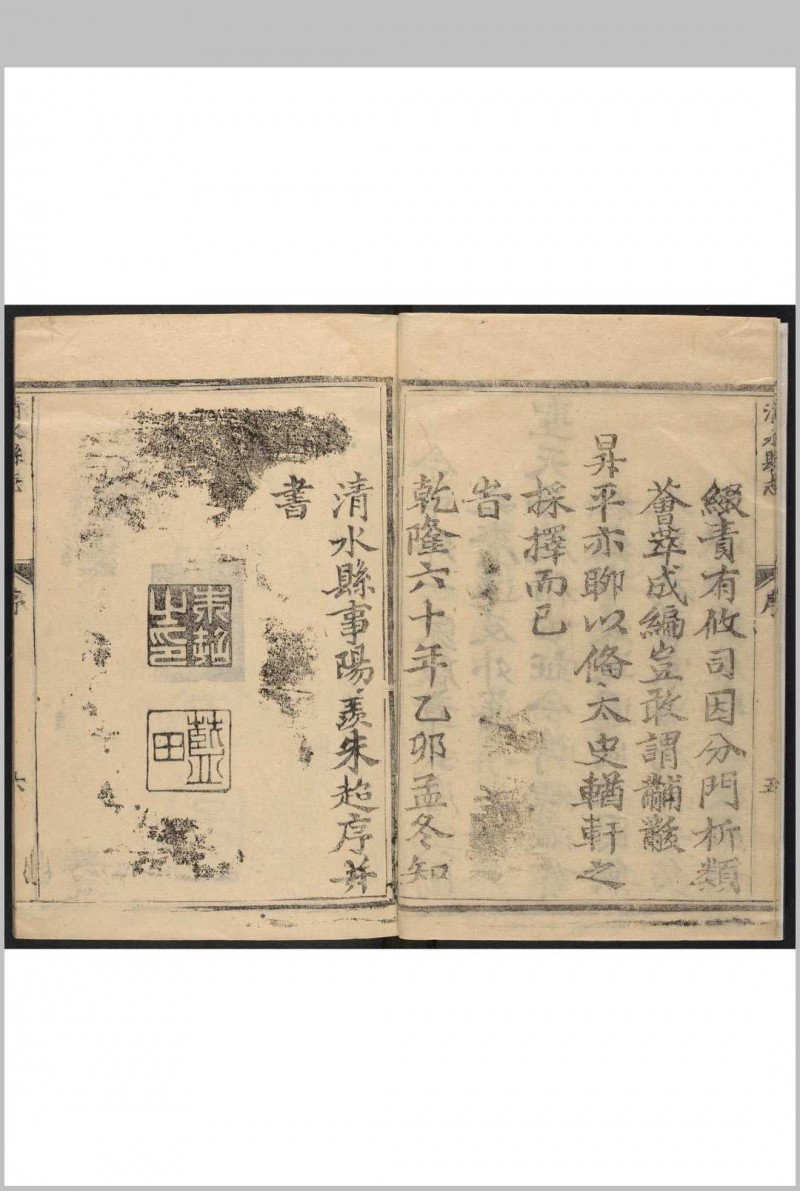 清水縣志
序
五
綴責有攸司因分門析類
薈萃成編豈敢謂黼黻
昇平亦聊以俻太史輶軒之
採擇而已
旹
乾隆六十年乙卯孟冬知
清水縣事陽羨朱超序并
書
朱超之印
藍田
清水縣志
序
六